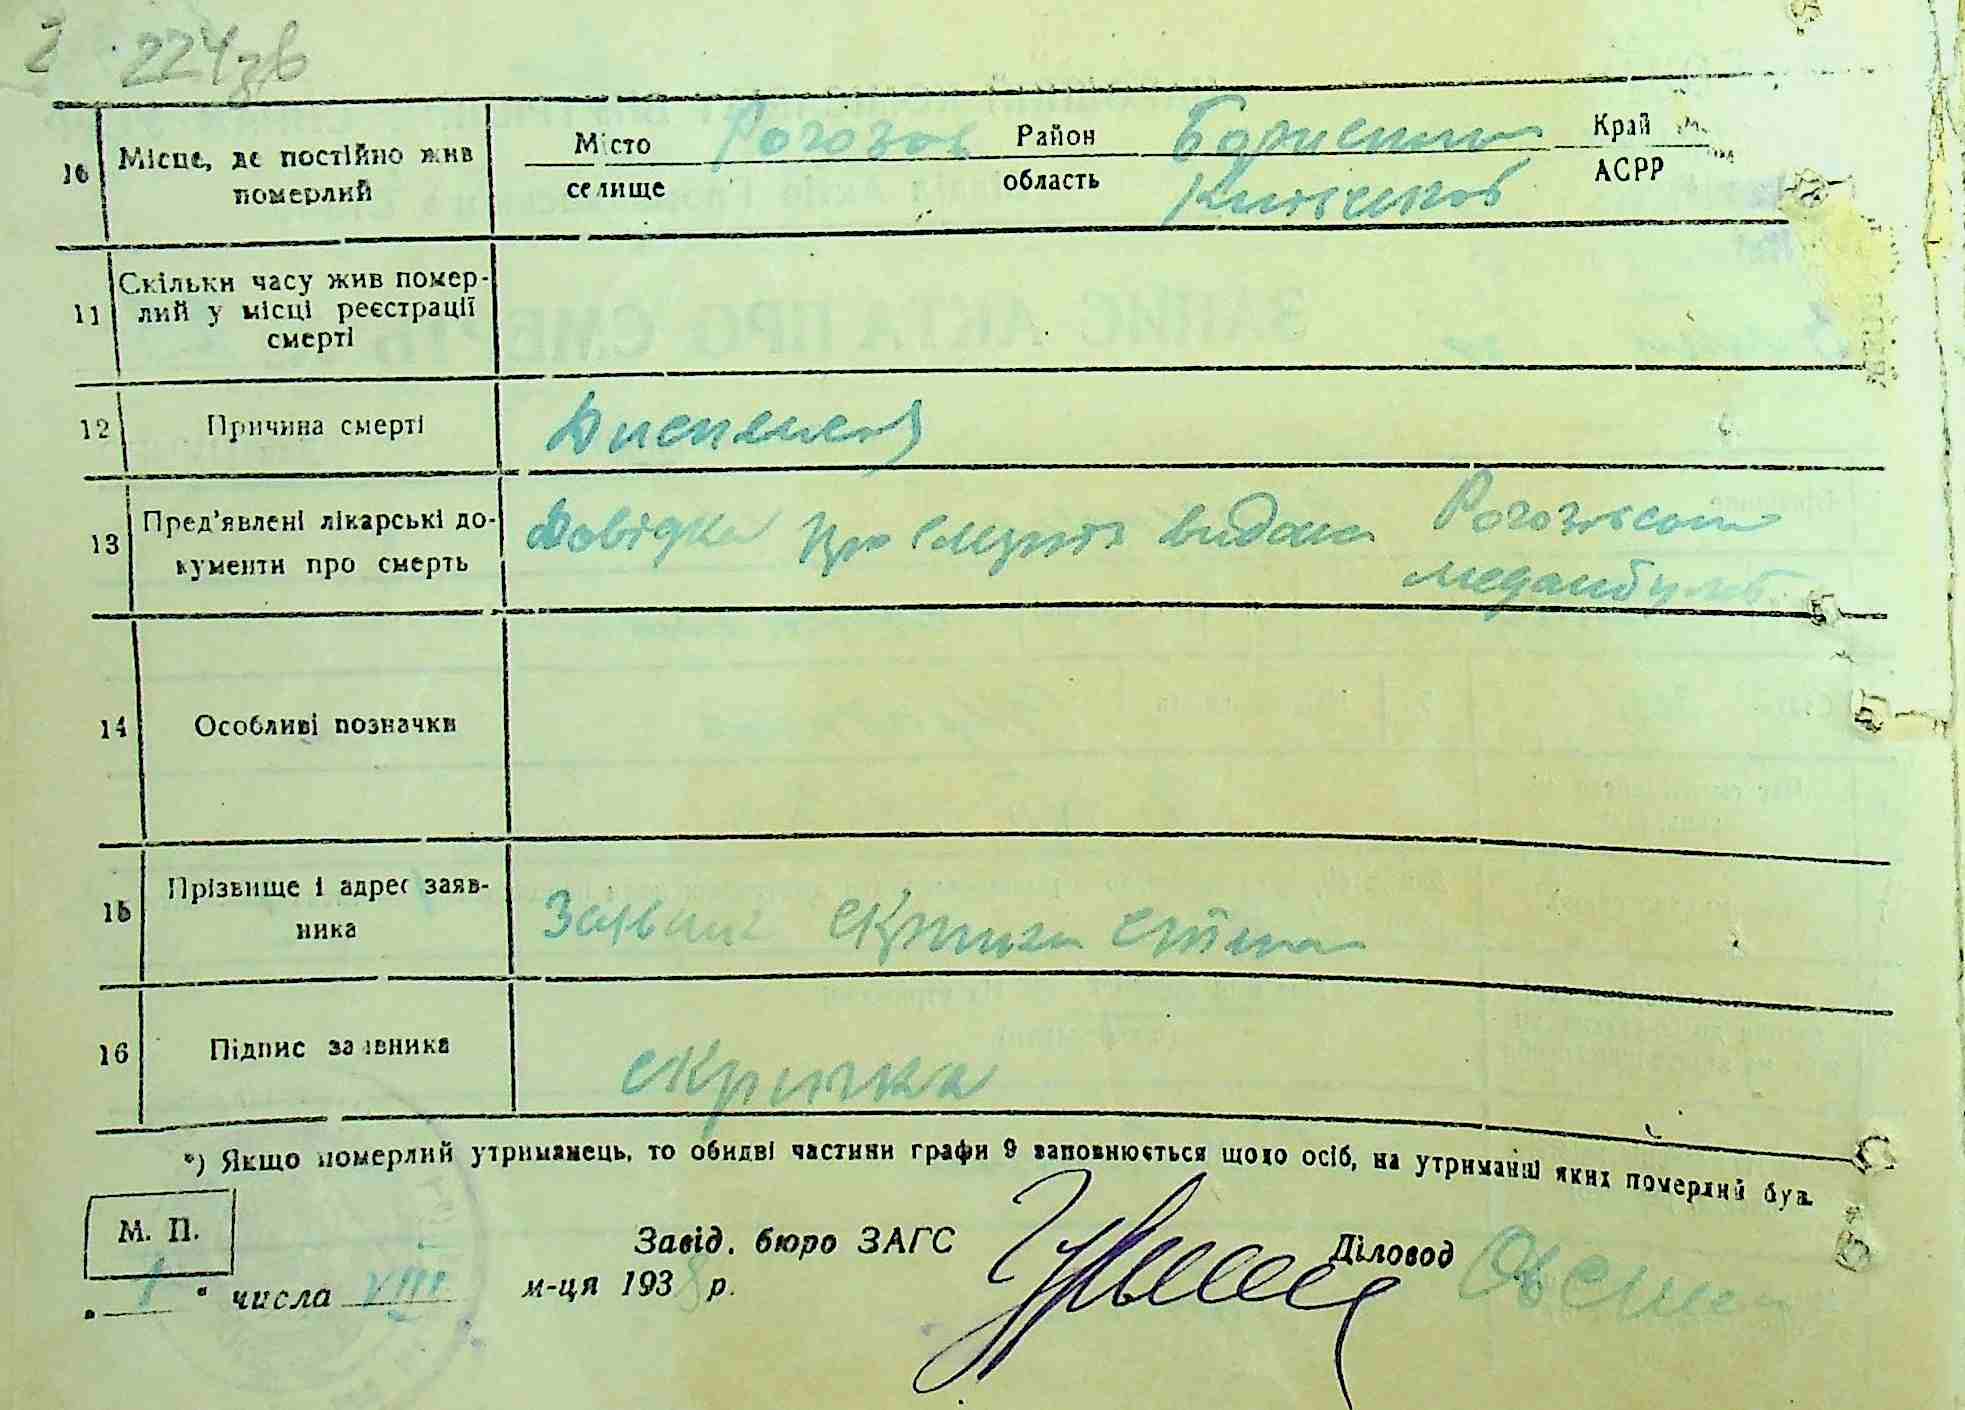 224зв
10 Місце, де постійно жив померлий
Місто селище Рогозов Район область Бориспол Київський Край АСРР
11 Скільки часу жив померлий у місці реєстрації смерті
12 Причина смерті Диспепсія
13 Пред'явлені лікарські документи про смерть
Довідка про смерть видана Рогозівською
медамбулат
14 Особливі позначки
15 Прізвище і адрес заявника Скричка
16 Підпис заявника Скричка
*) Якщо померлий утриманець, то обидві частини графи 9 заповнюється щодо осіб, на утриманні яких померлий був.
М. П.
Завід. бюро ЗАГС Діловод
„ 1 " числа VIII м-ця 1938 р.